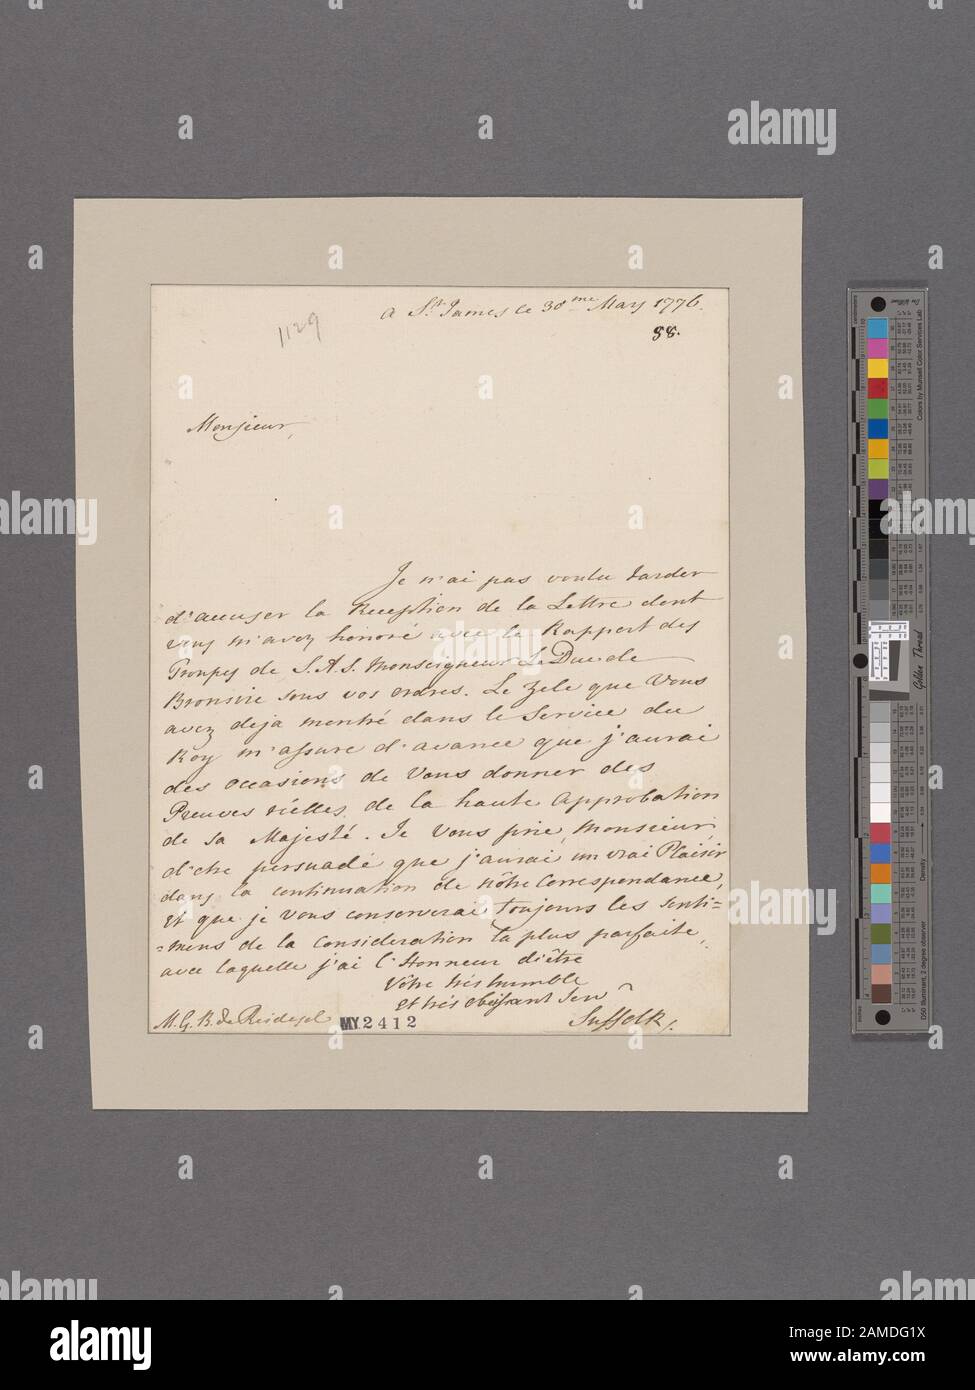 a St. James le 30me May 1776.
88.
1129
Monsieur,
Je n'ai pas voulu tarder
d'accuser la Reception de la Lettre dont
vous m'avez honoré avec le Rapport des
Troupes de S.A.S. Monseigneur Le Duc de
Bronsvic sous vos ordres. Le Zele que Vous
avez deja montré dans le Service du
Roy m'assure d'avance que j'aurai
des occasions de Vous donner des
Preuves réelles de la haute Approbation
de sa Majesté. Je Vous prie, Monsieur,
d'etre persuadé que j'aurai un vrai Plaisir
dans la continuation de nôtre Correspondance,
et que je Vous conserverai toujours les senti=
=mens de la Consideration la plus parfaite,
avec laquelle j'ai l'Honneur d'être
Vôtre très humble
et très obéissant Serv
Suffolk.
M. G. B. de Riedesel
MY 2412
alamy
Image ID: 2AMDG1X
www.alamy.com